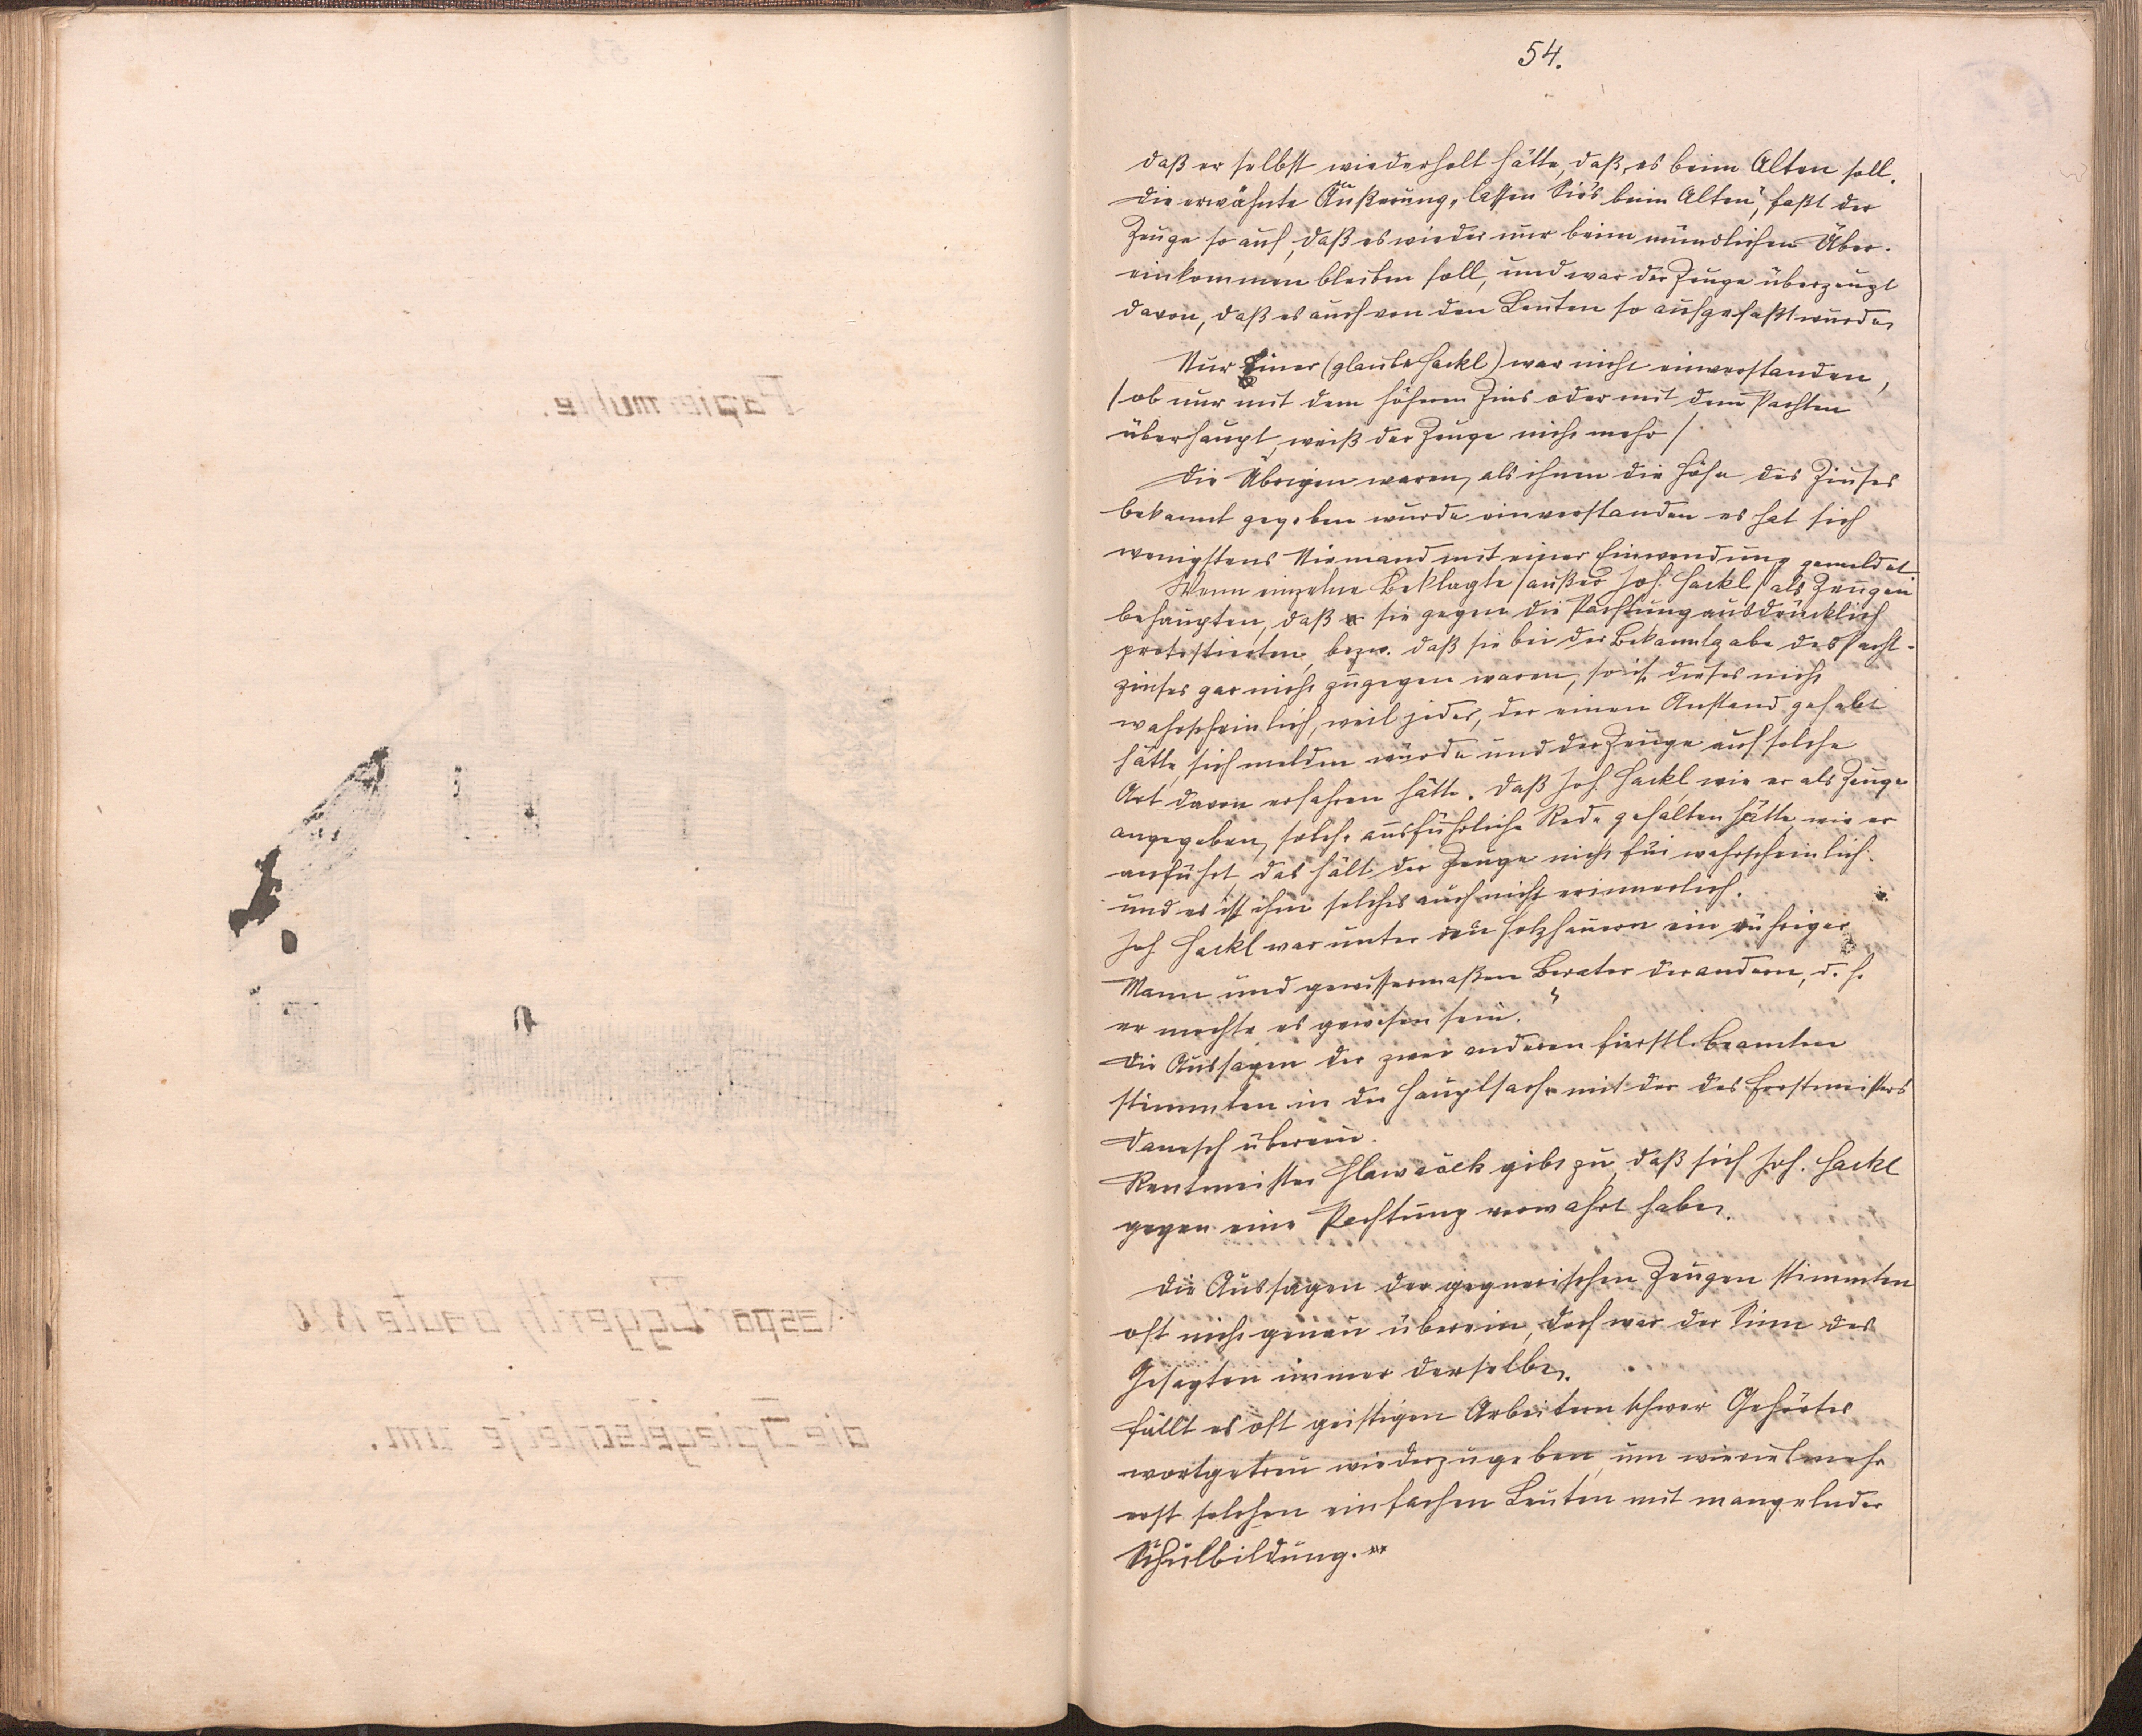 54.
daß er selbst wiederholt hätte, daß es beim Alten soll.
Die erwähnte Äußerung „lassen Sie's beim Alten", faßt der
Zeuge so auf, daß es wieder nur beim mündlichen Über-
einkommen bleiben soll, und war der Zeuge überzeugt
davon, daß es auch von den Leuten so aufgefaßt wurde.
Nur Einer (glaube Hackl) war nicht einverstanden,
/ob nur mit dem höheren Zins oder mit dem Pachten
überhaupt, weiß der Zeuge nicht mehr/
Die Übrigen waren, als ihnen die Höhe des Zinses
bekannt gegeben wurde einverstanden es hat sich
wenigstens Niemand mit einer Einwendung gemeldet
Wenn einzelne Beklagte /außer Joh. Hackl/ als Zeugen
behaupten, daß sie gegen die Pachtung ausdrücklich
protestierten, bezw. daß sie bei der Bekanntgabe des Pacht-
zinses gar nicht zugegen waren, so ist dieses nicht
wahrscheinlich, weil jeder, der einen Anstand gehabt
hätte, sich melden würde und der Zeuge auf solche
Art davon erfahren hätte. Daß Joh. Hackl, wie er als Zeuge
angegeben, solche ausführliche Rede gehalten hätte, wie er
anführt das hält der Zeuge nicht für wahrscheinlich
und es ist ihm solches auch nicht erinnerlich.
Joh. Hackl war unter den Holzhauern ein rühriger
Mann und gewissermaßen Berater der andern, d. h.
er mochte es gewesen sein."
Die Aussagen der zwei anderen fürstl. Beamten
stimmten in der Hauptsache mit der des Forstmeisters
Danesch überein.
Rentmeister Hlawaček gibt zu, daß sich Joh. Hackl
gegen eine Pachtung verwahrt habe.
Die Aussagen der gegnerischen Zeugen stimmten
oft nicht genau überein, doch war der Sinn des
Gesagten immer derselbe.
Fällt es oft geistigen Arbeitern schwer Gehörtes
wortgetreu wiederzugeben, um wieviel mehr
erst solchen einfachen Leuten mit mangelnder
Schulbildung.